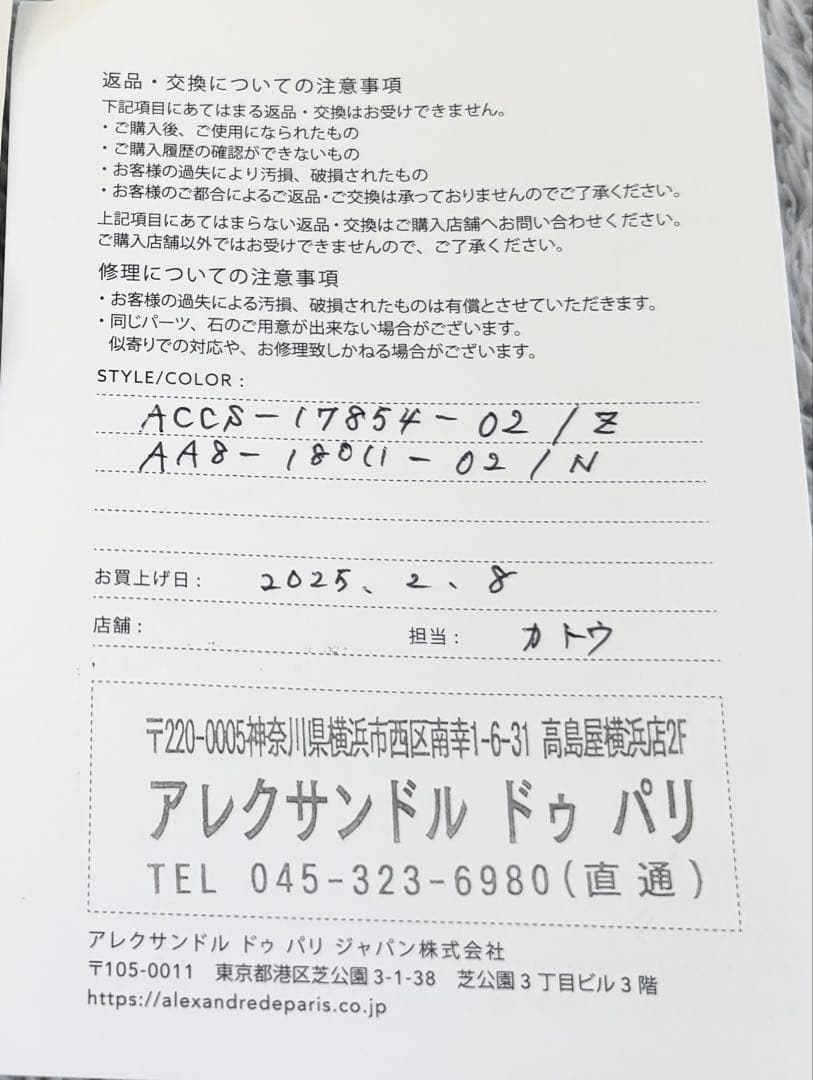 返品・交換についての注意事項
下記項目にあてはまる返品・交換はお受けできません。
・ご購入後、ご使用になられたもの
・ご購入履歴の確認ができないもの
・お客様の過失により汚損、破損されたもの
・お客様のご都合によるご返品・ご交換は承っておりませんのでご了承ください。
上記項目にあてはまらない返品・交換はご購入店舗へお問い合わせください。
ご購入店舗以外ではお受けできませんので、ご了承ください。
修理についての注意事項
・お客様の過失による汚損、破損されたものは有償とさせていただきます。
・同じパーツ、石のご用意が出来ない場合がございます。
似寄りでの対応や、お修理致しかねる場合がございます。
STYLE/COLOR :
ACCS-17854-02/Z
AA8-18011-02/N
お買上げ日： 2025、2、8
店舗： 担当： カトウ
〒220-0005神奈川県横浜市西区南幸1-6-31 高島屋横浜店2F
アレクサンドル ドゥ パリ
TEL 045-323-6980(直通)
アレクサンドル ドゥ パリ ジャパン株式会社
〒105-0011 東京都港区芝公園3-1-38 芝公園3丁目ビル3階
https://alexandredeparis.co.jp